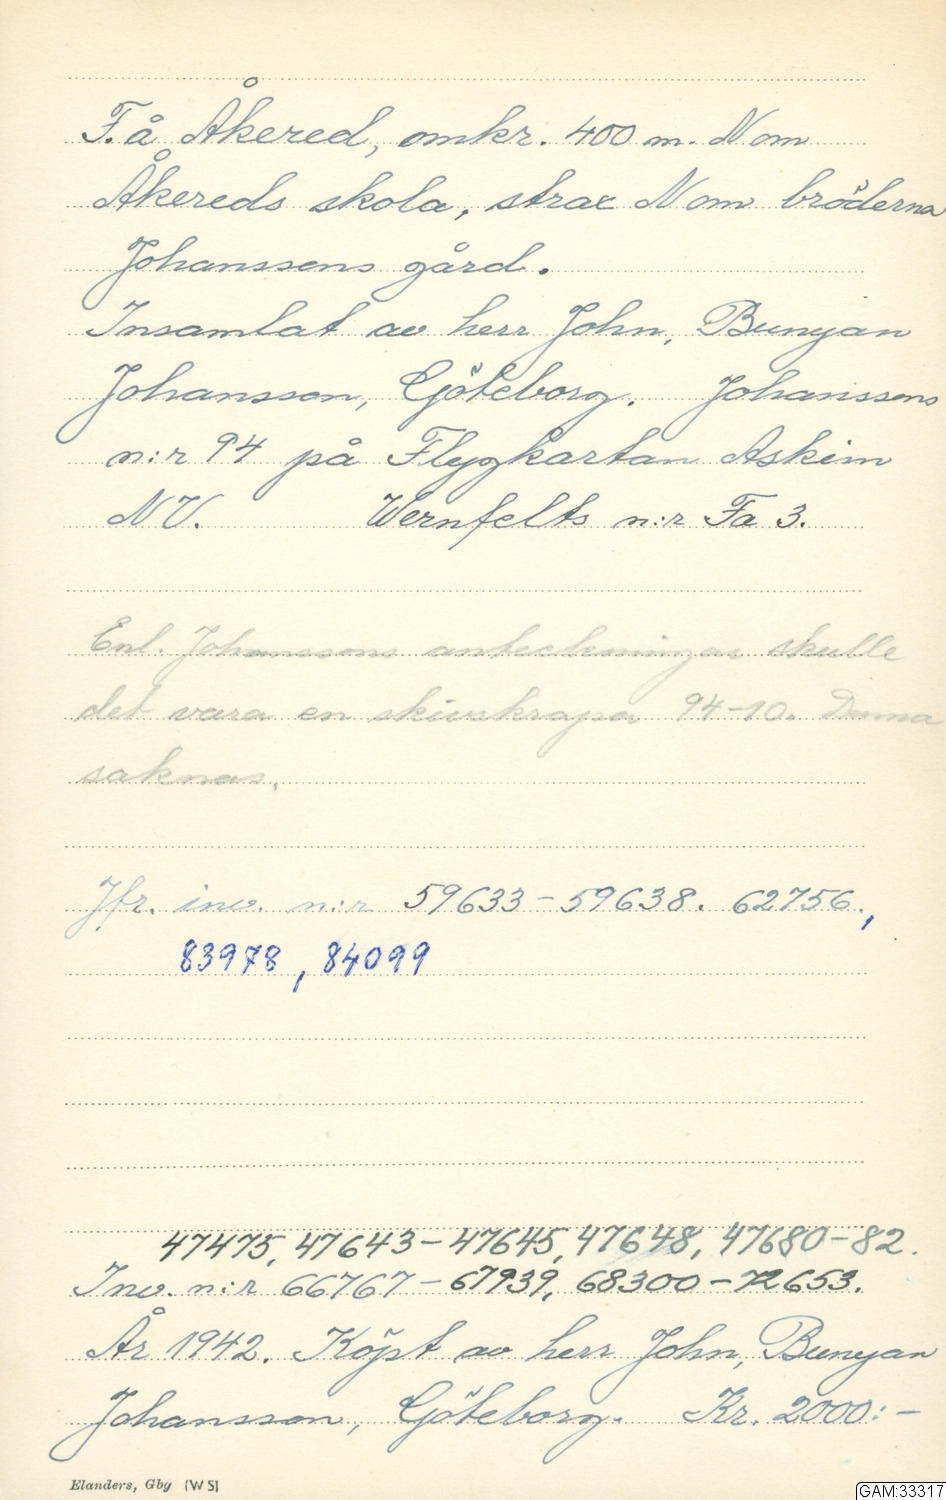 F. å Åkered, omkr. 400 m. N om
Åkereds skola, strax N om bröderna
Johanssons gård.
Insamlat av herr John, Bunyan
Johansson, Göteborg. Johanssons
n:r 94 på Flygkartan Askim
NV. Wernfelts n:r Fa 3.
Enl. Johanssons anteckningar skulle
det vara en skivskrapa 94-10. Denna
saknas.
Jfr. inv. n:r 59633-59638. 62756,
83978, 84099
47475, 47643-47645, 47648, 47680-82.
Inv. n:r 66767-67939, 68300-72653.
År 1942. Köpt av herr John, Bunyan
Johansson, Göteborg. Kr. 2000:-
Elanders, Gby (WS)
GAM:33317